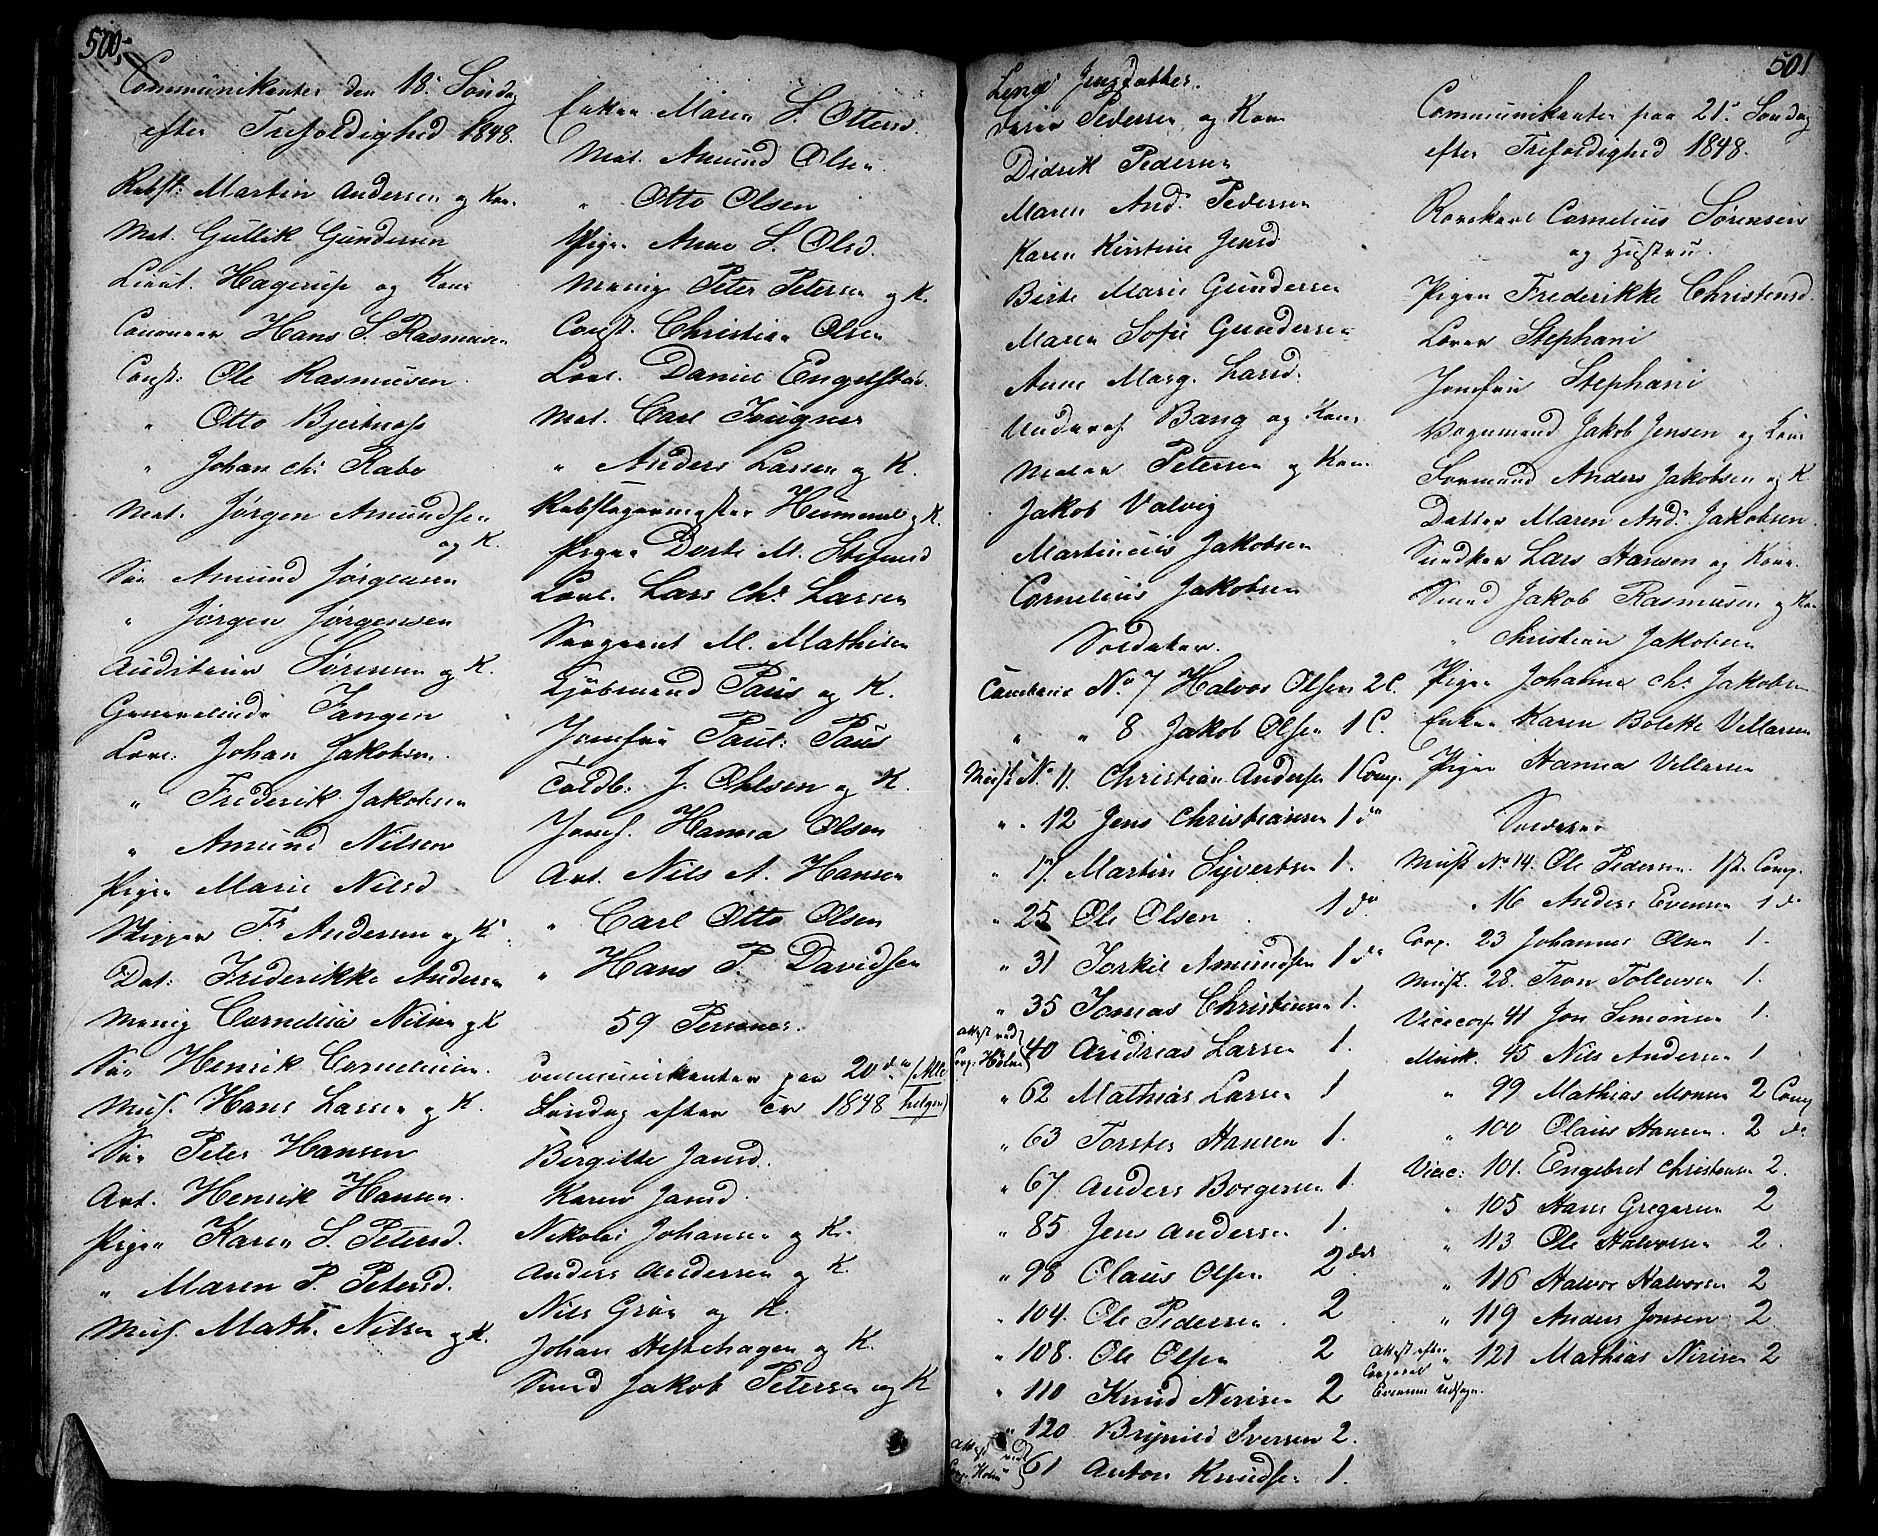 500,
Communikanter den 18. Søndag
efter Trefoldighed 1848.
Rebsl: Martin Andersen og Kone
Mat. Gullik Gundersen
Lieut. Hagerup og Kone
Canoneer Hans S. Rasmusen
Const: Ole Rasmusen
" Otto Bjertnæs
" Johan Chr Rabe
Mat. Jørgen Amundsen
og K.
Søn Amund Jørgensen
" Jørgen Jørgensen
Auditeur Sørensen og K.
Generalinde Tangen
Love: Johan Jakobsen
" Frederik Jakobsen
" Amund Nilsen
Pigen Marie Nilsd
Skipper Fr Andersen og K.
Dat: Frederikke Andersen
Menig Cornelius Nilsen og K
Søn Henrik Corneliusen.
Mus. Hans Larsen og K.
Søn Peter Hansen
Art. Henrik Hansen.
Pigen Karen S. Petersd.
" Maren P. Petersd.
Mus. Math. Nilsen og K.
Enken Maren S. Ottersd.
Mat. Amund Olsen
" Otto Olsen
Pigen Anne S. Olsd.
Menig Peter Petersen og K.
Const. Christian Olsen
Love. Daniel Engelstad.
Mat. Carl
" Anders Larsen og K.
Rebslagermester Hemmel og K.
Pigen Dorte M. Stefensd
Love. Lars Chr Larsen
Sergeant M. Mathisen
Kjøbmand Paus og K.
Jomfru Paul: Paus
Toldb: J. Ohlsen og K.
Jomf. Hanna Olsen
Art. Nils A. Hansen
" Carl Otto Olsen
" Hans P. Davidsen
59 Personer.
Communikanter paa 20de (Alle
Søndag efter Tr 1848 helgen)
Birgitte Jansd.
Karen Jansd.
Nikolai Johansen og K.
Anders Andersen og K.
Nils Grøn og K.
Johan Hestehagen og K.
Smed Jakob Petersen og K
501
Lene Jensdatter.
Søren Pedersen og Kone
Didrik Pedersen
Maren And. Pedersen
Karen Kirstine Jensd
Birte Marie Gundersen
Maren Sofie Gundersen
Anne Marg. Larsd.
Underof. Bang og Kone
Maler Petersen og Kone
Jakob Valvig
Martinius Jakobsen
Cornelius Jakobsen
Soldater.
No 7 Halvor Olsen 2 C.
" " 8 Jakob Olsen 1 C.
Musk No 11. Christian Andersen 1 Comp.
" " 12 Jens Christiansen 1 do
" 17. Martin Syvertsen 1.
" 25 Ole Olsen 1 do
" 31 Torkil Amundsen 1 do
" 35 Tomas Christiansen 1.
Attest ved
Corp. Holm } 40 Andreas Larsen 1.
" 62 Mathias Larsen 1
" 63 Torsten Hansen 1.
" 67. Anders Borgersen 1.
" 85 Jens Andersen 1.
" 98 Olaus Olsen 2 do
" 104. Ole Pedersen 2
" 108. Ole Olsen 2
" 110 Knud Nirisen 2
" 120 Brynild Iversen 2.
Attest ved
Corp. Holm } 61 Anton Knudsen 1.
Communikanter paa 21. Søndag
efter Trefoldighed 1848.
Rorskarl Cornelius Sørensen
og Hustru.
Pigen Frederikke Christensd.
Lærer Stephani
Jomfru Stephani
Vognmand Jakob Jensen og Kone
Formand Anders Jakobsen og K
Datter Maren And. Jakobsen.
Snedker Lars Hansen og Kone.
Smed Jakob Rasmusen og Kone
" Christian Jakobsen
Pigen Johanne Chr. Jakobsen
Enken Karen Bolette Villarsen
Pigen Hanna Villarsen
Soldater
Musk No 14. Ole Pedersen. 1st. Comp.
" 16 Anders Evensen 1 do
Corp. 23 Johannes Olsen 1.
Musk. 28. Tron Tollevsen 1.
Vicecorp 41 Jon Simonsen 1.
Musk. 45 Nils Andersen 1
" 99 Mathias Monsen 2 Comp
" 100 Olaus Hansen. 2 do
Vicec: 101. Engebret Christensen 2.
" 105 Hans Gregersen 2
" 113 Ole Halvorsen 2.
" 116 Halvor Halvorsen 2
" 119 Anders Jonsen 2.
Attest efter
Corporal
Evensens Udsagn. " 121 Mathias Nirisen 2